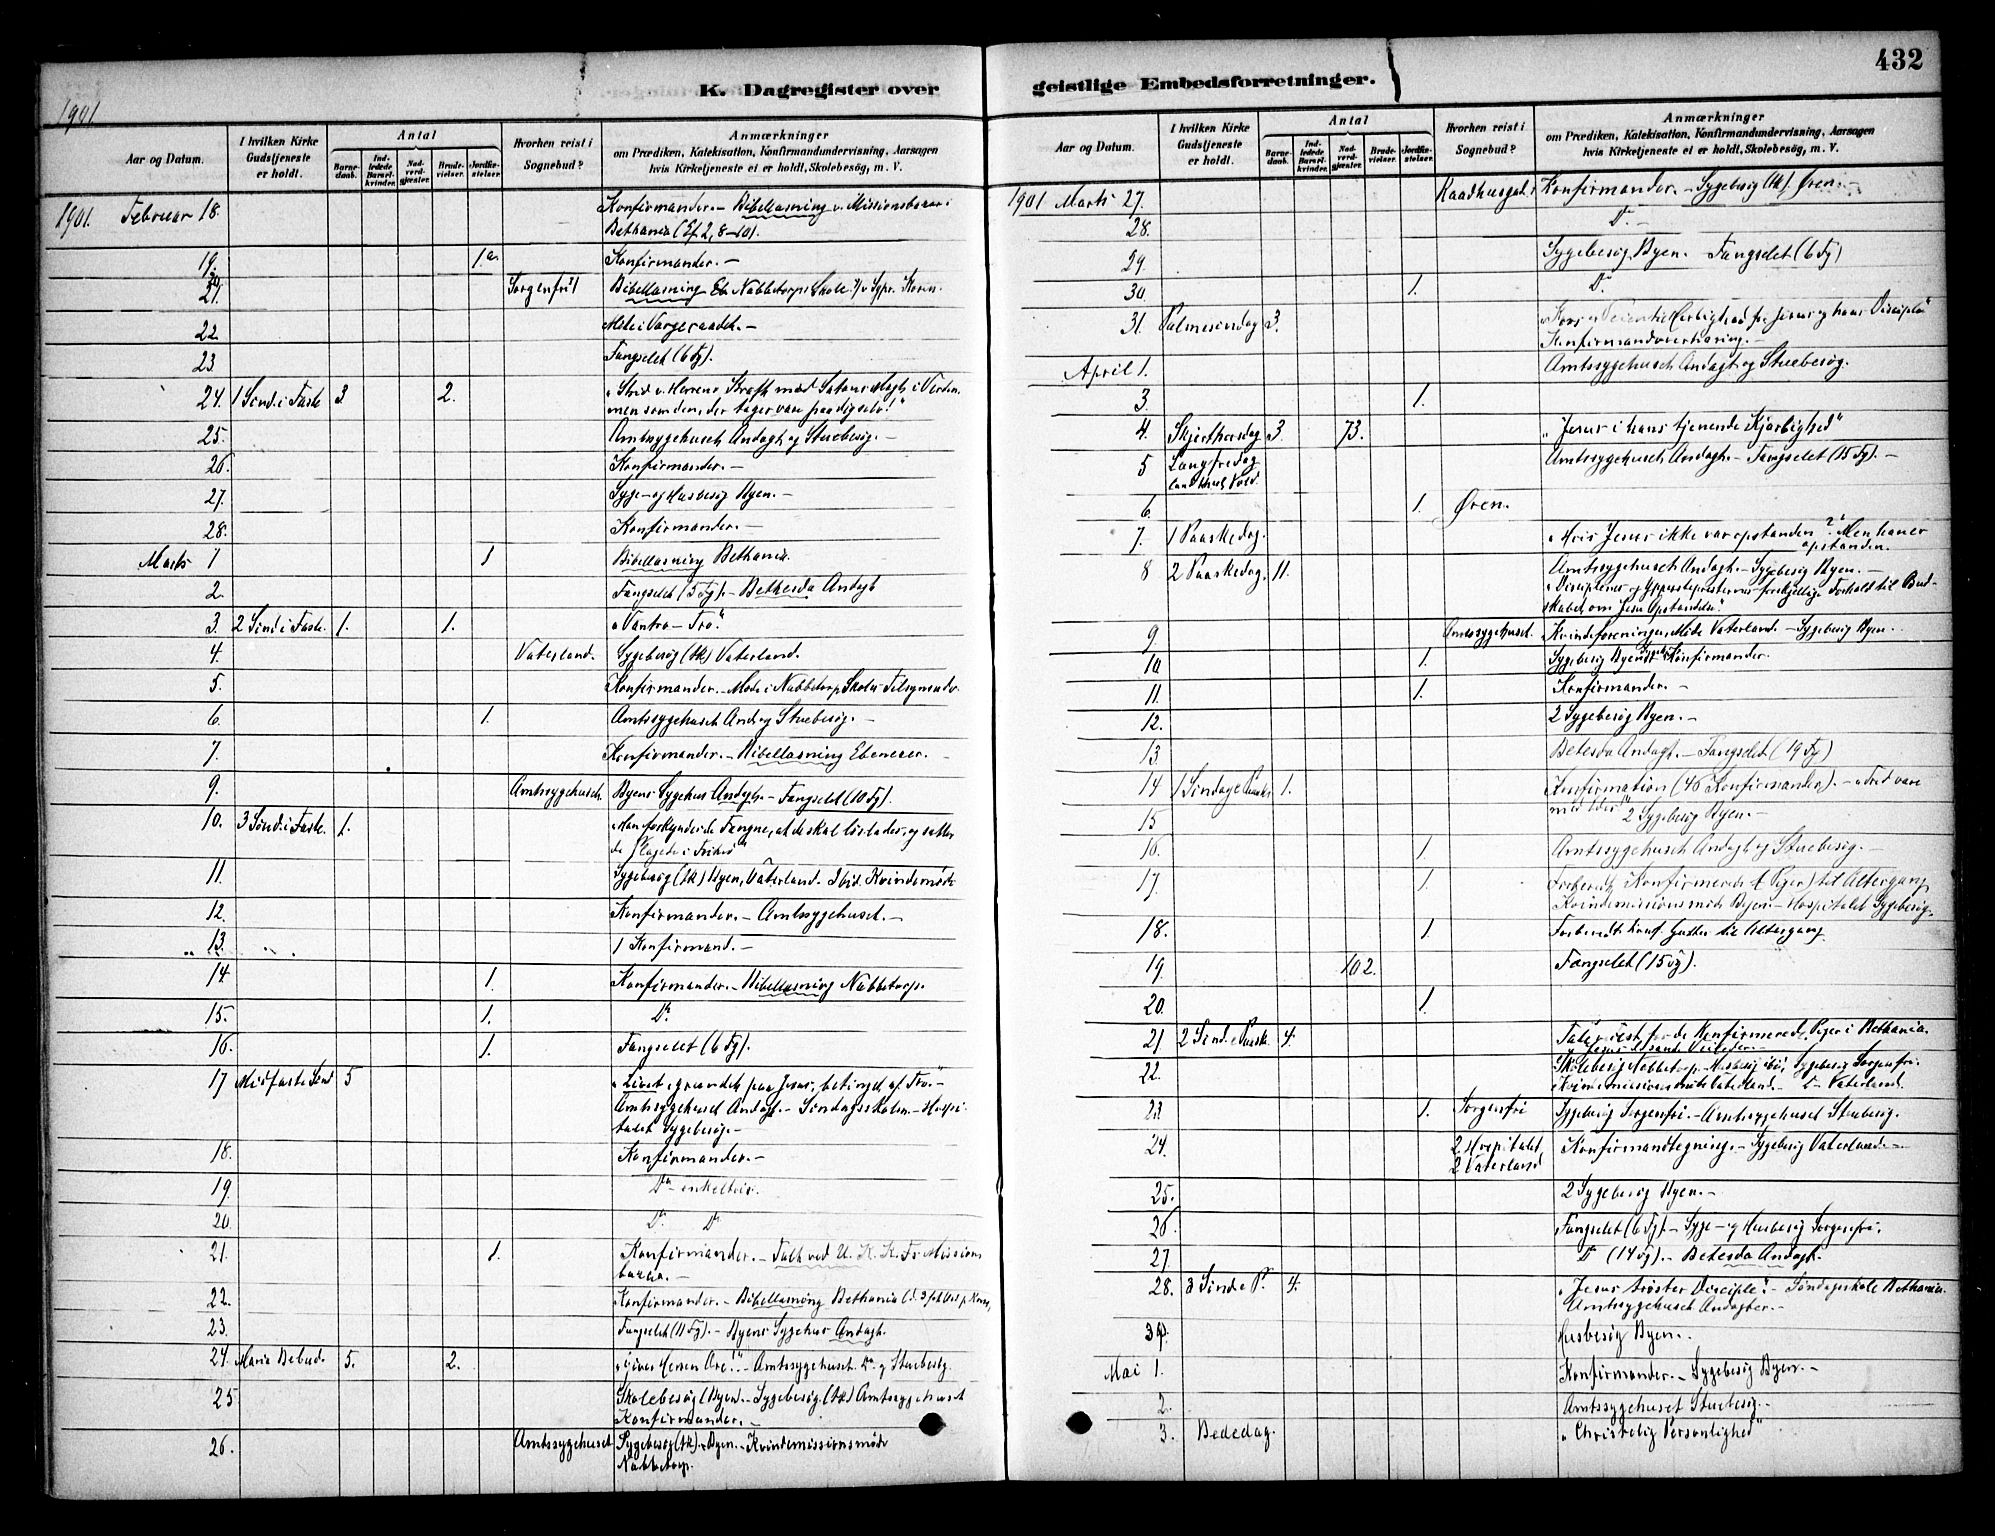 1901
K. Dagregister over
Aar og Datum.
I hvilken Kirke Gudstjeneste er holdt.
Antal
Barne-daab.
Ind-ledede Barsel-kvinder.
Nad-verd-gjæster.
Brude-vielser.
Jordfæ-stelser.
Hvorhen reist i Sognebud?
Anmærkninger
om Prædiken, Katekisation, Konfirmandundervisning, Aarsagen
hvis Kirketjeneste ei er holdt, Skolebesøg, m. V.
1901. Februar 18. Konfirmander. – Bibellæsning v. Missionsbazar i
Bethania (Ef. 2, 8–10).
19. 1. Konfirmander. –
21. Sorgenfri Bibellæsning Nabbetorps Skole
22. Møde i Vergeraadet. –
23 Fængslet (6 Fg).
24. 1 Sønd. i Faste 3 2. „Strid v. Herrens Kraft mod Satans Magt i Verden
men som den, der tager vare paa dig selv!"
25. Amtssygehuset Andagt og Stuebesøg. –
26. Konfirmander. –
27. Syge- og Husbesøg Byen. –
28. Konfirmander. –
Marts 1 1 Bibellæsning Bethania.
2. Fængslet (5 Fg). – Bethesda Andagt
3. 2 Sønd i Faste. 1. 1. „Vantro – Tro."
4. Vaterland. Sygebesøg Vaterland.
5. Konfirmander. – Møde i Nabbetorp Skole
6. 1. Amtssygehuset And. og Stuebesøg. –
7. Konfirmander. – Bibellæsning Ebenezer. –
9. Amtssygehuset. Byens Sygehus Andagt. – Fængslet (10 Fg).
10. 3 Sønd. i Faste. 1. „Han forkynder de Fangne, at de skal løslades, og sætter
de Plagede i Frihed"
11. Sygebesøg Byen, Vaterland. Ibid. Kvindemøde
12. Konfirmander. – Amtssygehuset. –
13. 1 Konfirmand. –
14. 1. Konfirmander. – Bibellæsning Nabbetorp.
15. 1. Do
16. 1. Fængslet (6 Fg).
17 Midfaste Sønd 5 „Livet, grundet paa Jesus, betinget af Tro." –
Amtssygehuset Andagt. – Søndagsskolen – Hospi-
talet Sygebesøg. –
18. Konfirmander. –
19 Do enkeltvis.
20 Do Do
21. 1. Konfirmander. – Tale ved U. K. K. F. Missions
bazar. –
22. Konfirmander. – Bibellæsning Bethania
23. Fængslet (11 Fg). – Byens Sygehus Andagt.
24. Maria Bebud. 5. 2. „Giver Herren Ære!" – Amtssygehuset. Do og Stuebesøg.
25 Skolebesøg (Byen). – Sygebesøg Amtssygehuset
Konfirmander. –
26. Amtssygehuset Sygebesøg Byen. – Kvindemissionsmøde
Nabbetorp.
432
geistlige Embedsforretninger.
Aar og Datum.
I hvilken Kirke Gudstjeneste er holdt.
Antal
Barne-daab.
Ind-ledede Barsel-kvinder.
Nad-verd-gjæster.
Brude-vielser.
Jordfæ-stelser.
Hvorhen reist i Sognebud?
Anmærkninger
om Prædiken, Katekisation, Konfirmandundervisning, Aarsagen
hvis Kirketjeneste ei er holdt, Skolebesøg, m. V.
1901 Marts 27. Raadhusgad. Konfirmander. – Sygebesøg Øren. –
28. Do –
29. Sygebesøg, Byen. Fængslet (6 Fg)
30. 1. Do
31. Palmesøndag 3. til Herlighed for Jesus og hans Disciple"
Konfirmandoverhøring. –
April 1. Amtssygehuset Andagt og Stuebesøg.
3. 1.
4. Skjærthorsdag 3 73. „Jesus i hans tjenende Kjærlighed"
5 Langfredag Amtssygehuset Andagt. – Fængslet (15 Fg). –
6. 1. Øren.
7. 1 Paaskedag. „Hvis Jesus ikke var opstanden"? Men han er
opstanden.
8 2 Paaskedag. 11. Amtssygehuset Andagt. – Sygebesøg Byen. –
„Disciplenes og Ypperstepresternes forskjellige Forhold til Bud-
skabet om Jesu Opstandelse."
9 Amtssygehuset. Kvindeforeningen, Møde Vaterland. – Sygebesøg Byen. –
10 1. Sygebesøg Byen Konfirmander.
11. 1. Konfirmander. –
12. 2 Sygebesøg Byen. –
13. Betesda Andagt. – Fængslet (19 Fg)
14 1 Søndag e Paaske 1. Konfirmation (46 Konfirmander). – „Fred være
med Eder"
15 2 Sygebesøg Byen. –
16. 1. Amtssygehuset Andagt og Stuebesøg. –
17. 1. Forberedt Konfirmerede (Piger) til Altergang
Kvindemissionsmøde Byen. – Hospitalet Sygebesøg.
18. 1 Forberedt Konf. Gutter til Altergang
19. 102. Fængslet (15 Fg).
20. 1.
21 2 Sønd. e Paaske 4. for de Konfirmerede Piger i Bethania.
22. Skolebesøg Nabbetorp – Husbesøg ibi, Sygebesøg Sorgenfri.
Kvindemissionsmøde Vaterland. – Vaterland.
23 1. Sorgenfri Sygebesøg Sorgenfri. – Amtssygehuset Stuebesøg.
24. 2 Hospitalet, 2 Vaterland Konfirmandtegning. – Sygebesøg Vaterland. –
25. 2 Sygebesøg Byen. –
26. Fængslet (6 Fg). – Syge- og Husbesøg Sorgenfri.
27. Do (14 Fg). – Betesda Andagt.
28. 3 Sønd e P. 4. „Jesus trøster Disciple". – Søndagsskole Bethania.
Amtssygehuset Andagter. –
30. Husbesøg Byen. –
Mai 1. Konfirmander. – Sygebesøg Byen. –
2. Amtssygehuset Stuebesøg. –
3. Bededag. „Christelig Personlighed"